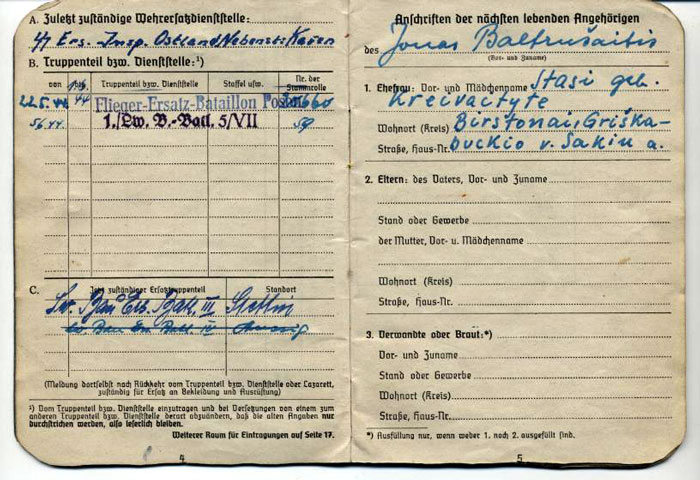 A. Zuletzt zuständige Wehrersatzdienststelle:
ᛋᛋ Ers. Insp. Ostland, Nebenst: Kauen
B. Truppenteil bzw. Dienststelle:¹)
von
Truppenteil bzw. Dienststelle
Staffel usw.
Nr. der Stammrolle
22.5.44
44
Flieger-Ersatz-Bataillon Posen
5.6.44.
1./Lw. B.-Batl. 5/VII
59
C.
Jetzt zuständiger Ersatztruppenteil
Standort
Lw. Bau Ers. Batl. III Stettin
Bau Ers. Batl. IV
(Meldung dortselbst nach Rückkehr vom Truppenteil bzw. Dienststelle oder Lazarett,
zuständig für Ersatz an Bekleidung und Ausrüstung)
¹) Vom Truppenteil bzw. Dienststelle einzutragen und bei Versetzungen von einem zum
anderen Truppenteil bzw. Dienststelle derart abzuändern, daß die alten Angaben nur
durchstrichen werden, also leserlich bleiben.
Weiterer Raum für Eintragungen auf Seite 17.
4
Anschriften der nächsten lebenden Angehörigen
des Jonas Baltrušaitis
(Vor- und Zuname)
1. Ehefrau: Vor- und Mädchenname Stasi geb.
Kreivactyte
Wohnort (Kreis) Birstonai, Griška-
Straße, Haus-Nr. buckio v. Sakiu a.
2. Eltern: des Vaters, Vor- und Zuname
Stand oder Gewerbe
der Mutter, Vor- u. Mädchenname
Wohnort (Kreis)
Straße, Haus-Nr.
3. Verwandte oder Braut:*)
Vor- und Zuname
Stand oder Gewerbe
Wohnort (Kreis)
Straße, Haus-Nr.
*) Ausfüllung nur, wenn weder 1. noch 2. ausgefüllt sind.
5